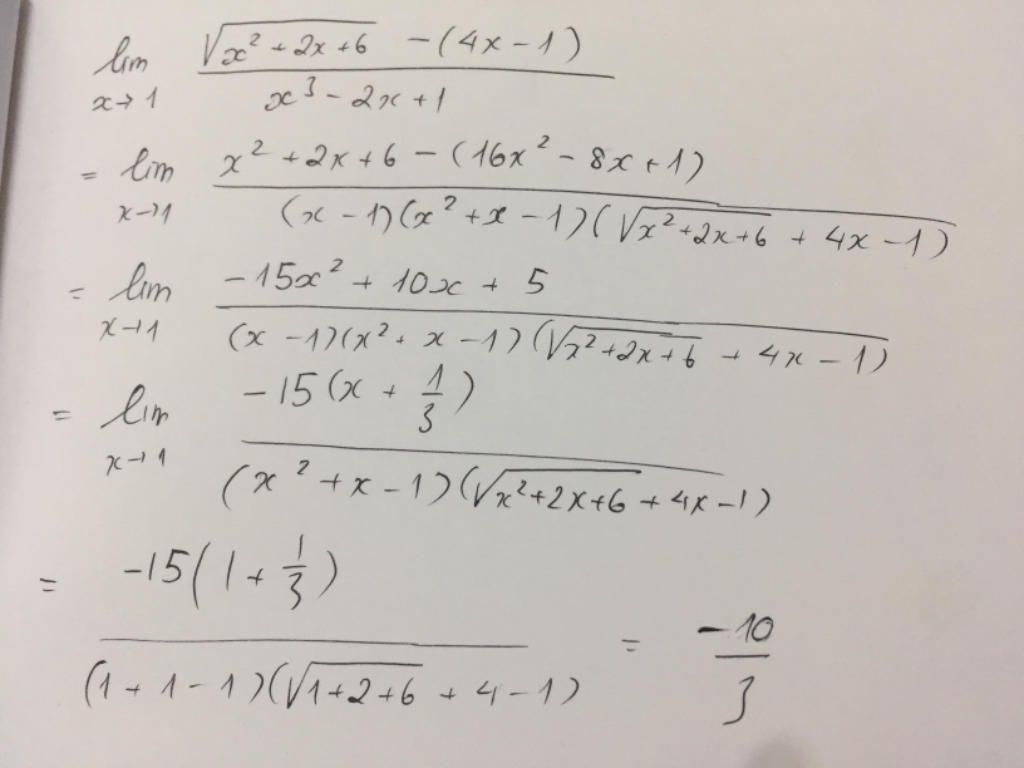 lim x→1 (√(x² + 2x + 6) - (4x - 1)) / (x³ - 2x + 1)
= lim x→1 (x² + 2x + 6 - (16x² - 8x + 1)) / ((x - 1)(x² + x - 1)(√(x² + 2x + 6) + 4x - 1))
= lim x→1 (-15x² + 10x + 5) / ((x - 1)(x² + x - 1)(√(x² + 2x + 6) + 4x - 1))
= lim x→1 (-15(x + 1/3)) / ((x² + x - 1)(√(x² + 2x + 6) + 4x - 1))
= (-15(1 + 1/3)) / ((1 + 1 - 1)(√(1 + 2 + 6) + 4 - 1)) = -10/3